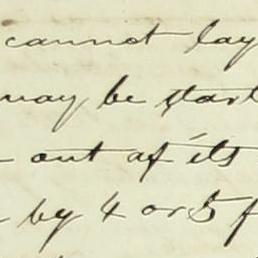 cannot lay
may be start
out of its
by 4 or 5 f